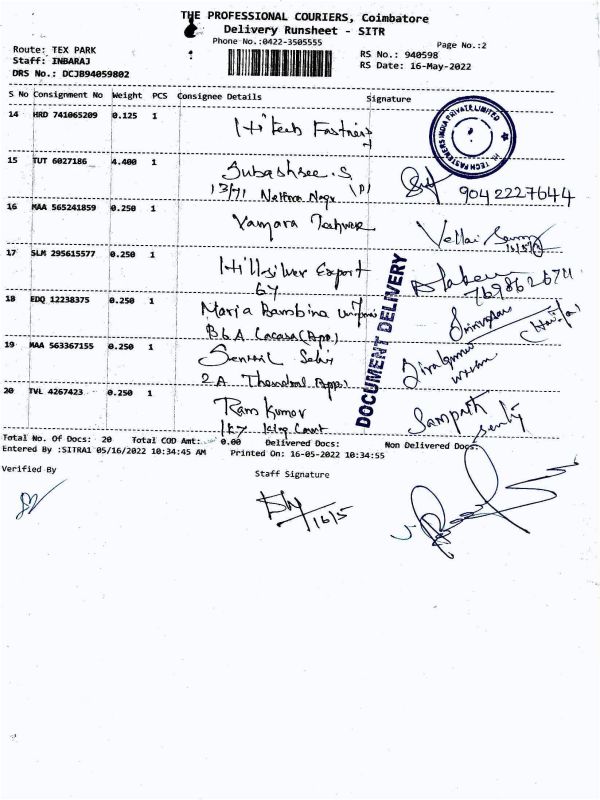 THE PROFESSIONAL COURIERS, Coimbatore
Delivery Runsheet - SITR
Phone No.:0422-3505555
Page No.:2
Route: TEX PARK
Staff: INBARAJ
DRS No.: DCJB94059802
RS No.: 940598
RS Date: 16-May-2022
S No Consignment No Weight PCS Consignee Details Signature
14 HRD 741065209 0.125 1 Hitech Fastners
HI TECH FASTENERS INDIA PRIVATE LIMITED
15 TUT 6027186 4.400 1 Subashree. S
13/71 Nethra Nagr
9042227644
16 MAA 565241859 0.250 1 Vamara
Vellai Samy
17 SLM 295615577 0.250 1 Hillsilver Export
67
18 EDQ 12238375 0.250 1 Maria Bambina
B6A Cacasa (Apo)
19 MAA 563367155 0.250 1
2 A
20 TVL 4267423 0.250 1 Ram Kumar
King Court
Sampath
DOCUMENT DELIVERY
Total No. Of Docs: 20 Total COD Amt: 0.00 Delivered Docs: Non Delivered Docs:
Entered By :SITRA1 05/16/2022 10:34:45 AM Printed On: 16-05-2022 10:34:55
Verified By
Staff Signature
16/5